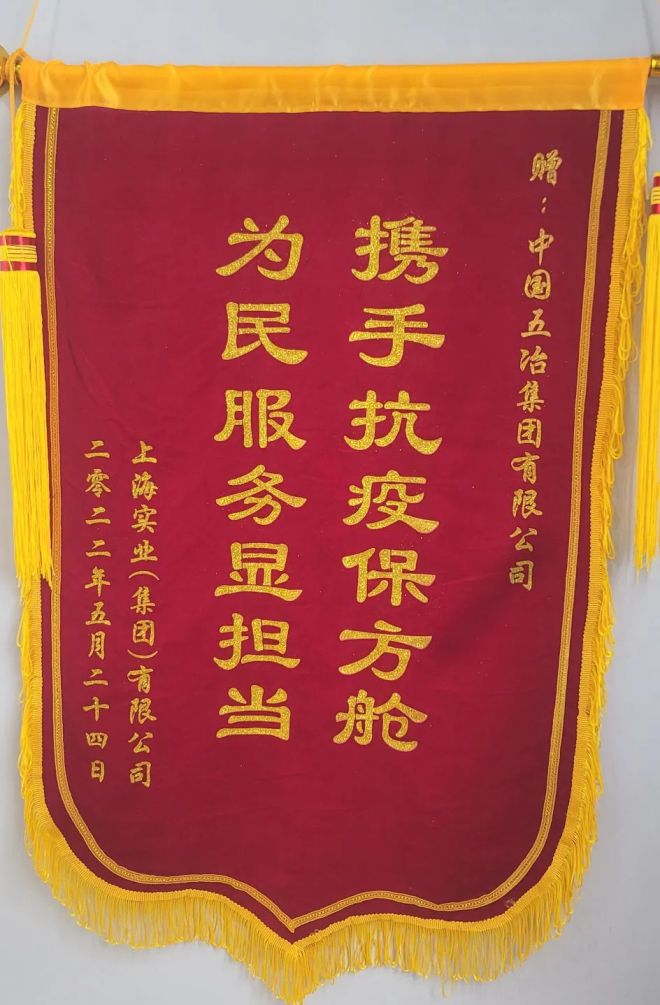 赠：中国五冶集团有限公司
携手抗疫保方舱
为民服务显担当
上海实业（集团）有限公司
二零二二年五月二十四日